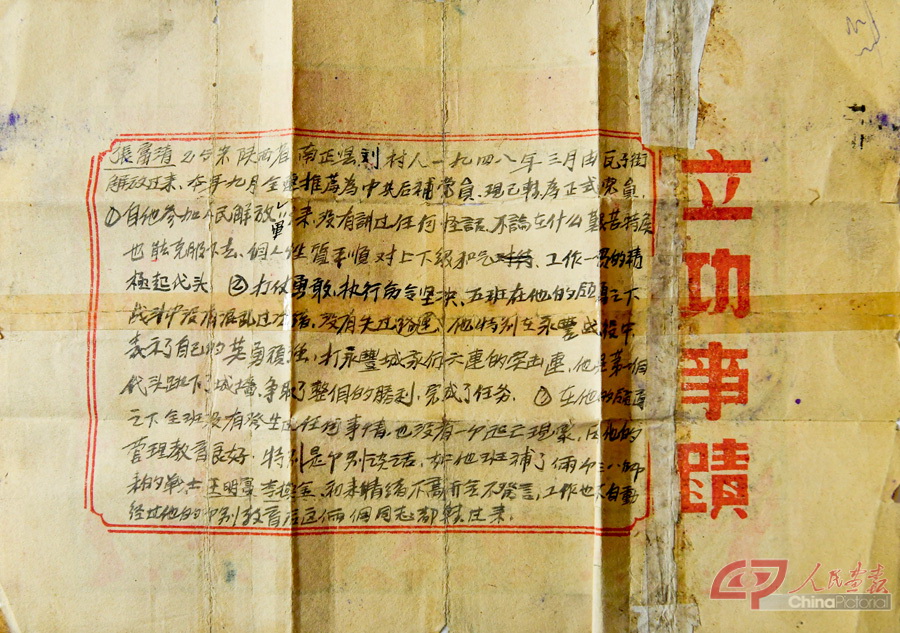 立功事蹟
張富清 25岁 陕西省南正县 村人一九四八年三月由瓦子街
解放过来、本年九月全連推荐為中共后補党員、現已轉為正式党員、
①自他参加人民解放軍以来、没有講过任何怪話、不論在什么艱苦特度
也能克服下去、個人性質和順对上下級和气、工作一貫的積
極起代头 ②打仗勇敢、执行命令坚决、五班在他的領導之下
战斗中没有混乱过、没有失过联絡、他特别在永豐战役中
表示了自己的英勇頑强、打永豐城我們六連的突击連、他是第一個
代头跳下城墻、争取了整個的勝利、完成了任务、③在他的領導
之下全班没有發生过任何事情、也没有一个逃亡現象、因他的
管理教育良好、特别是个别談話、如他班補了倆个
来的战士王明 李 初来情緒不高 不發言、工作也不自動
經过他的个别教育后這倆個同志都轉过来、
人民畫報
ChinaPictorial